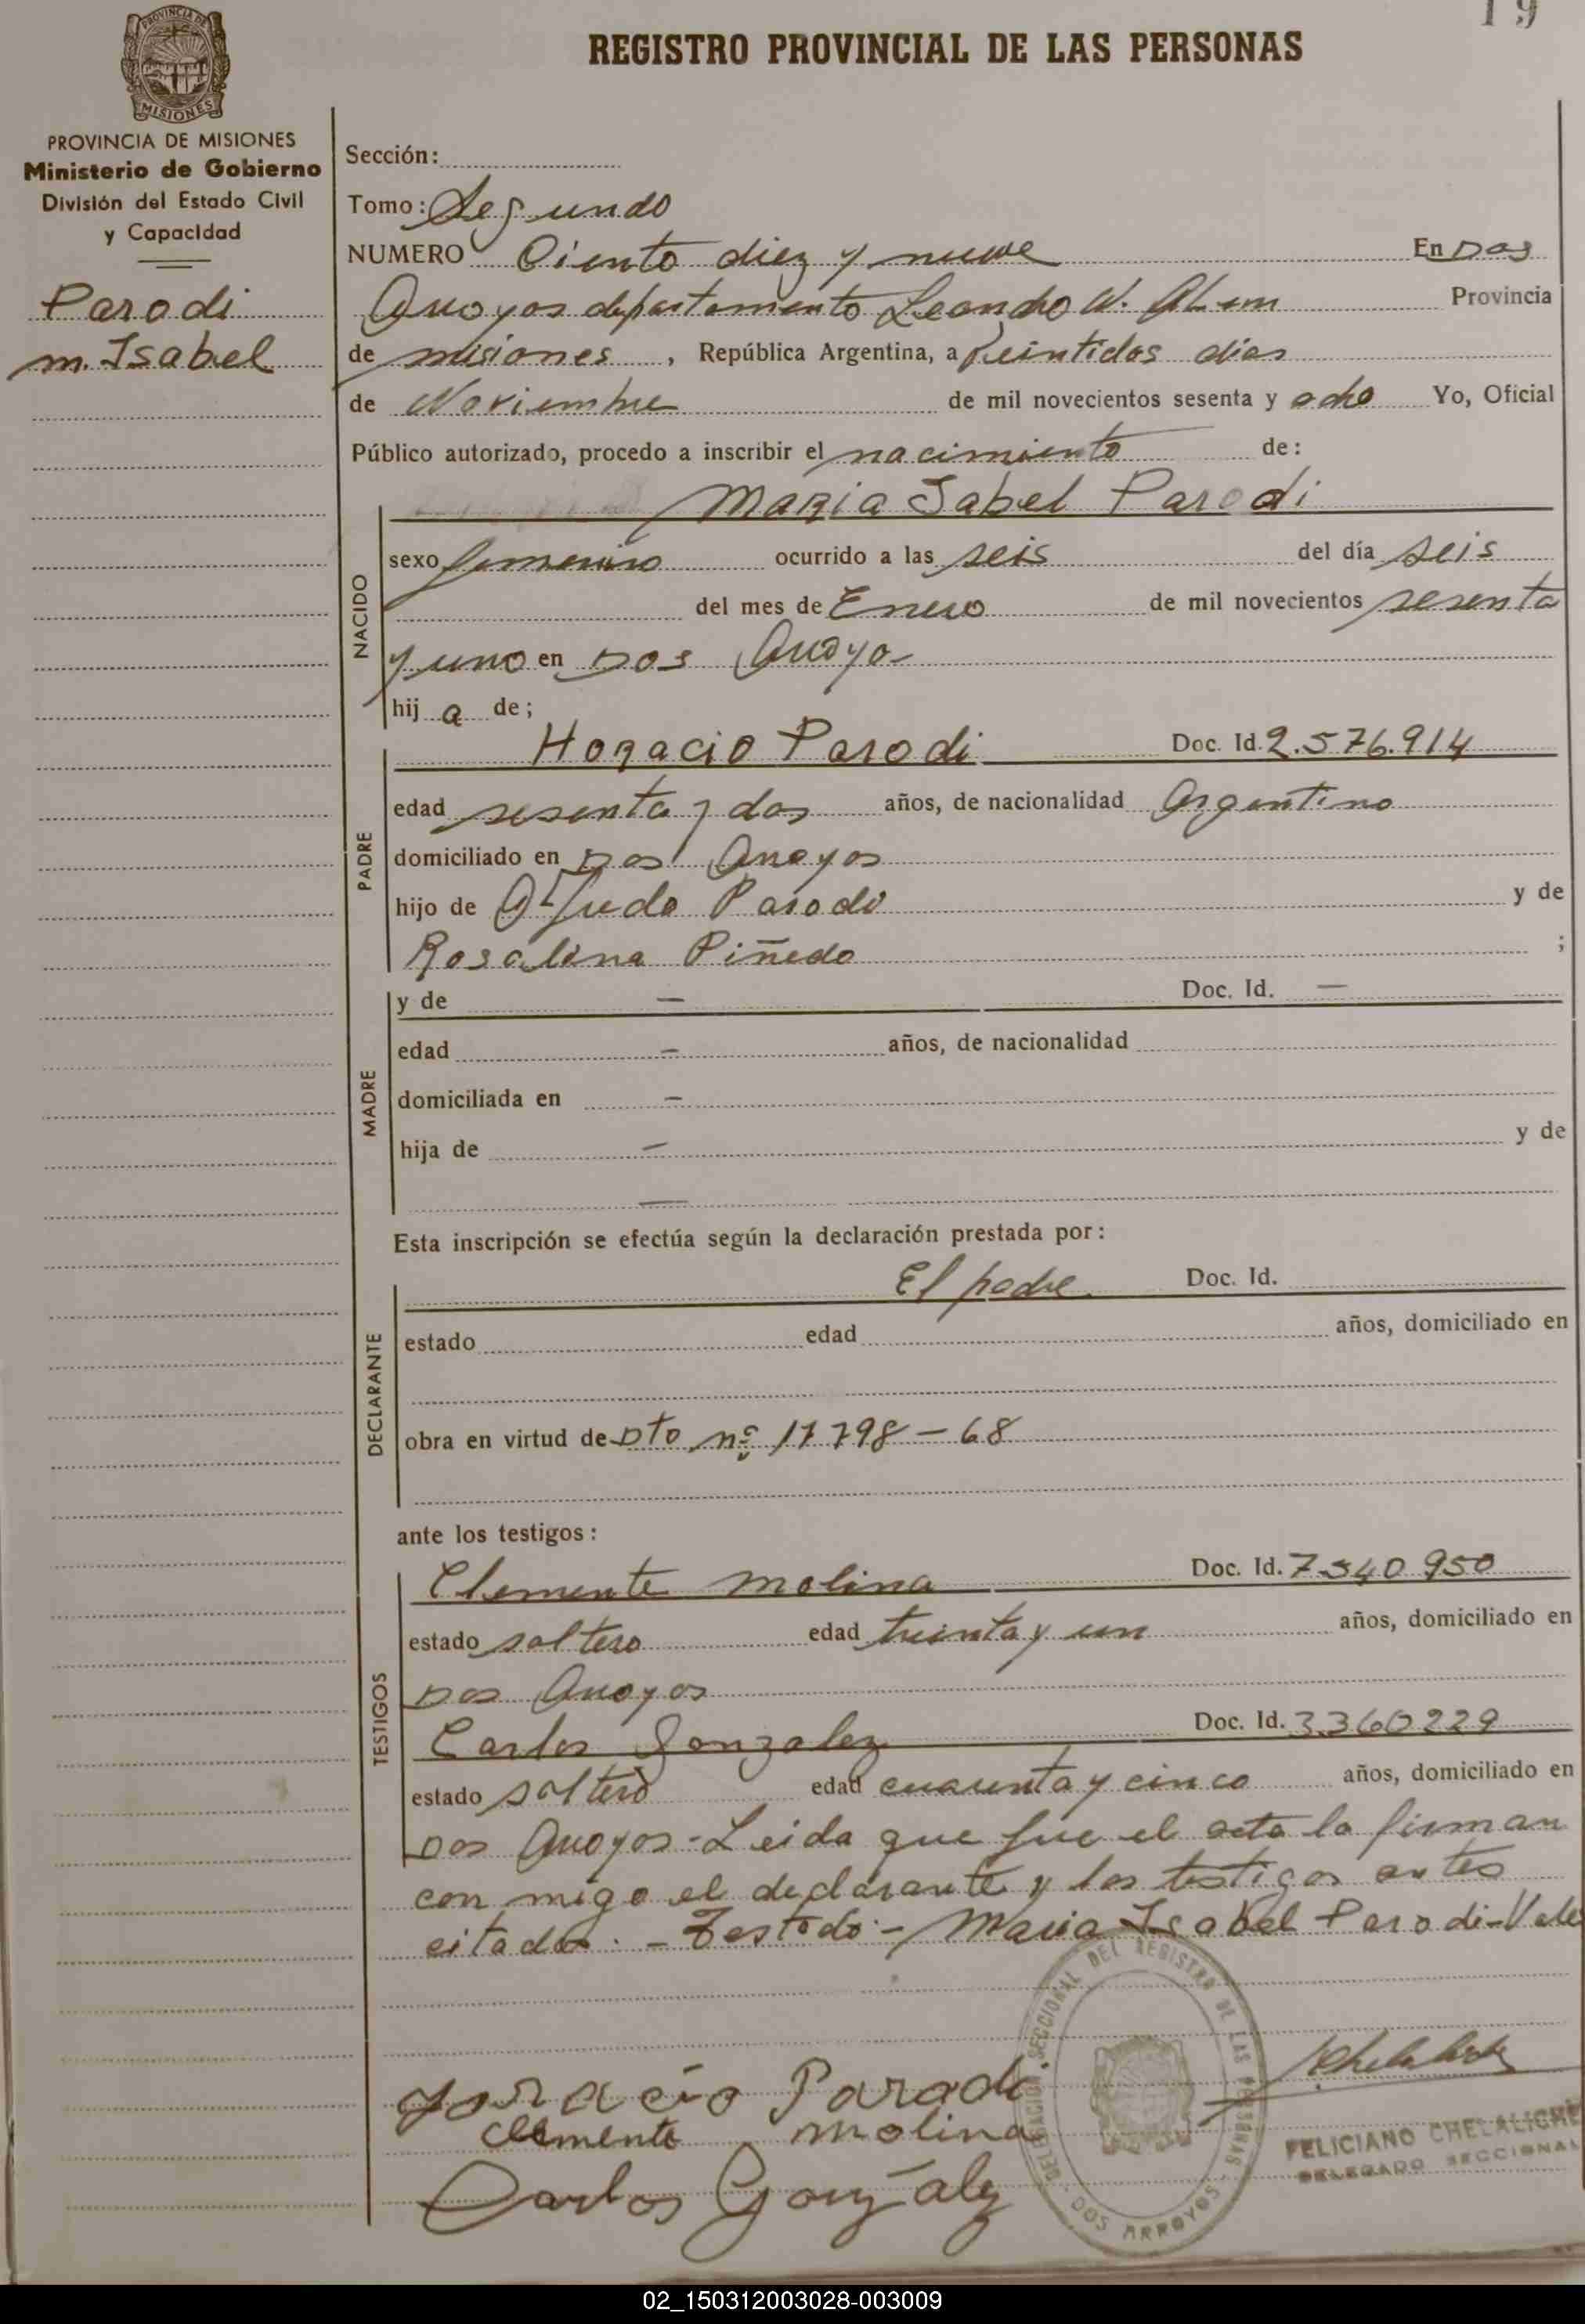 19
REGISTRO PROVINCIAL DE LAS PERSONAS
PROVINCIA DE MISIONES
MISIONES
PROVINCIA DE MISIONES
Ministerio de Gobierno
División del Estado Civil
y Capacidad
Parodi
m. Isabel
Sección:
Tomo: Segundo
NUMERO Ciento diez y nueve En Dos
Arroyos departamento Leandro N. Alem Provincia
de misiones, República Argentina, a Veintidos dias
de Noviembre de mil novecientos sesenta y ocho Yo, Oficial
Público autorizado, procedo a inscribir el nacimiento de:
Maria Isabel Parodi
NACIDO
sexo femenino ocurrido a las seis del día seis
del mes de Enero de mil novecientos sesenta
y uno en Dos Arroyos
hij a de;
PADRE
Horacio Parodi Doc. Id. 2.576.914
edad sesenta y dos años, de nacionalidad Argentino
domiciliado en Dos Arroyos
hijo de Alfredo Parodi y de
Rosalina Piñedo ;
MADRE
y de — Doc. Id. —
edad — años, de nacionalidad
domiciliada en —
hija de — y de
—
Esta inscripción se efectúa según la declaración prestada por:
DECLARANTE
El padre Doc. Id.
estado edad años, domiciliado en
obra en virtud de Dto nº 17798-68
ante los testigos:
TESTIGOS
Clemente Molina Doc. Id. 7340950
estado soltero edad treinta y un años, domiciliado en
Dos Arroyos
Carlos Gonzalez Doc. Id. 3360229
estado soltero edad cuarenta y cinco años, domiciliado en
Dos Arroyos - Leida que fue el acta la firman
con migo el declarante y los testigos antes
citados. - Testado: - Maria Isabel Parodi - Vale
Horacio Parodi
Clemente Molina
Carlos Gonzalez
DELEGACION SECCIONAL DEL REGISTRO DE LAS PERSONAS - DOS ARROYOS -
FELICIANO CHELALICHE
DELEGADO SECCIONAL
02_150312003028-003009